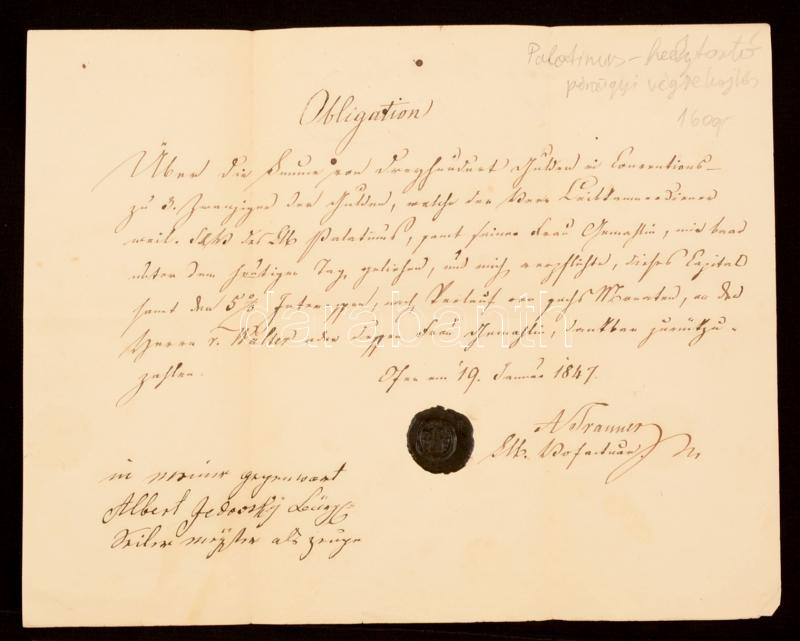 Palatinus –
160gr
Obligation
Über die Summe von dreyhundert Gulden in Conventions-
zu 3. Zwanziger der Gulden, welche der Herr Leibkammerdiener
weil. des Palatinus, samt seiner Frau Gemahlin, mir baar
unter dem heutigen Tag, geliehen, und mich verpflichte, dieses Capital
samt den 5 % Interessen, nach Verlauf von sechs Monaten, an den
Herrn v. Walter oder dessen Frau Gemahlin, dankbar zurückzu-
zahlen.
Ofen am 19. Januar 1847.
darabanth
Tranner
in meiner gegenwart
Albert Jedovsky
Seiler als zeuge